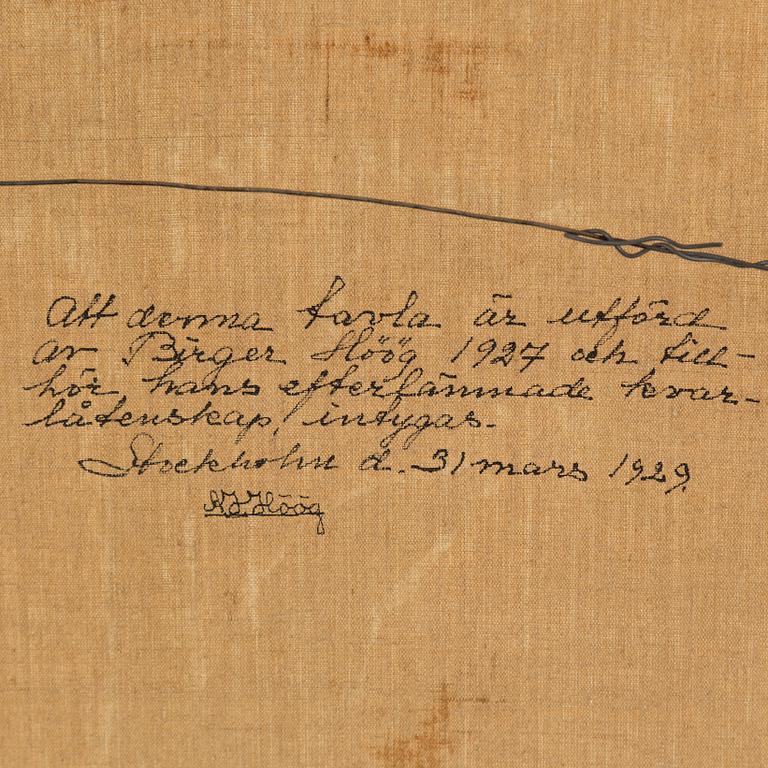 Att denna tavla är utförd
av Birger Höög 1927 och till-
hör hans efterlämnade kvar-
låtenskap, intygas.
Stockholm d. 31 mars 1929.
Höög